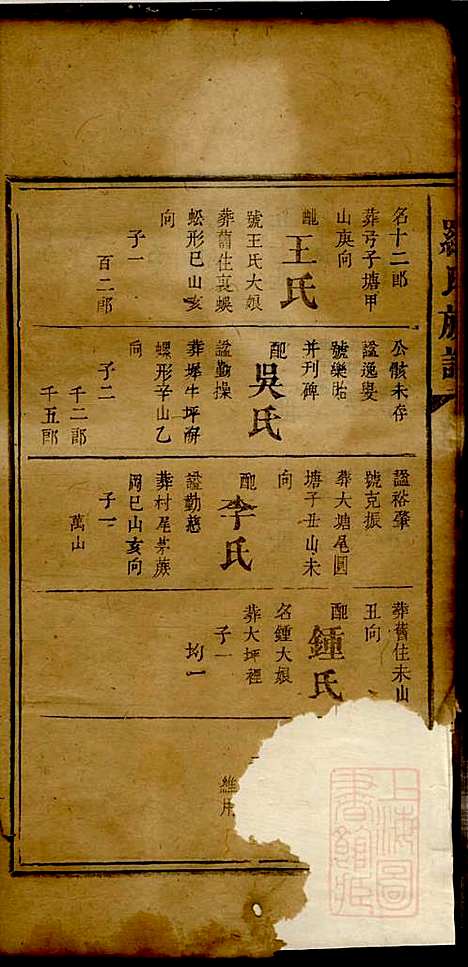 羅氏族譜
名十二郎
葬弓子塘甲
山庚向
配
王氏
號王氏大娘
葬舊住裏蜈
蚣形巳山亥
向
子一
百二郎
公骸未存
諡逸叟
號樂貽
并刊碑
配
吳氏
諡勤操
葬壩牛坪癬
螺形辛山乙
向
子二
千二郎
千五郎
諡裕肇
號克振
葬大塘尾圓
塘子丑山未
向
配
李氏
諡勤慈
葬村尾茅蔟
岡巳山亥向
子一
萬山
葬舊住未山
丑向
配
鍾氏
名鍾大娘
葬大坪裡
子一
均一
維用
上海圖書館藏